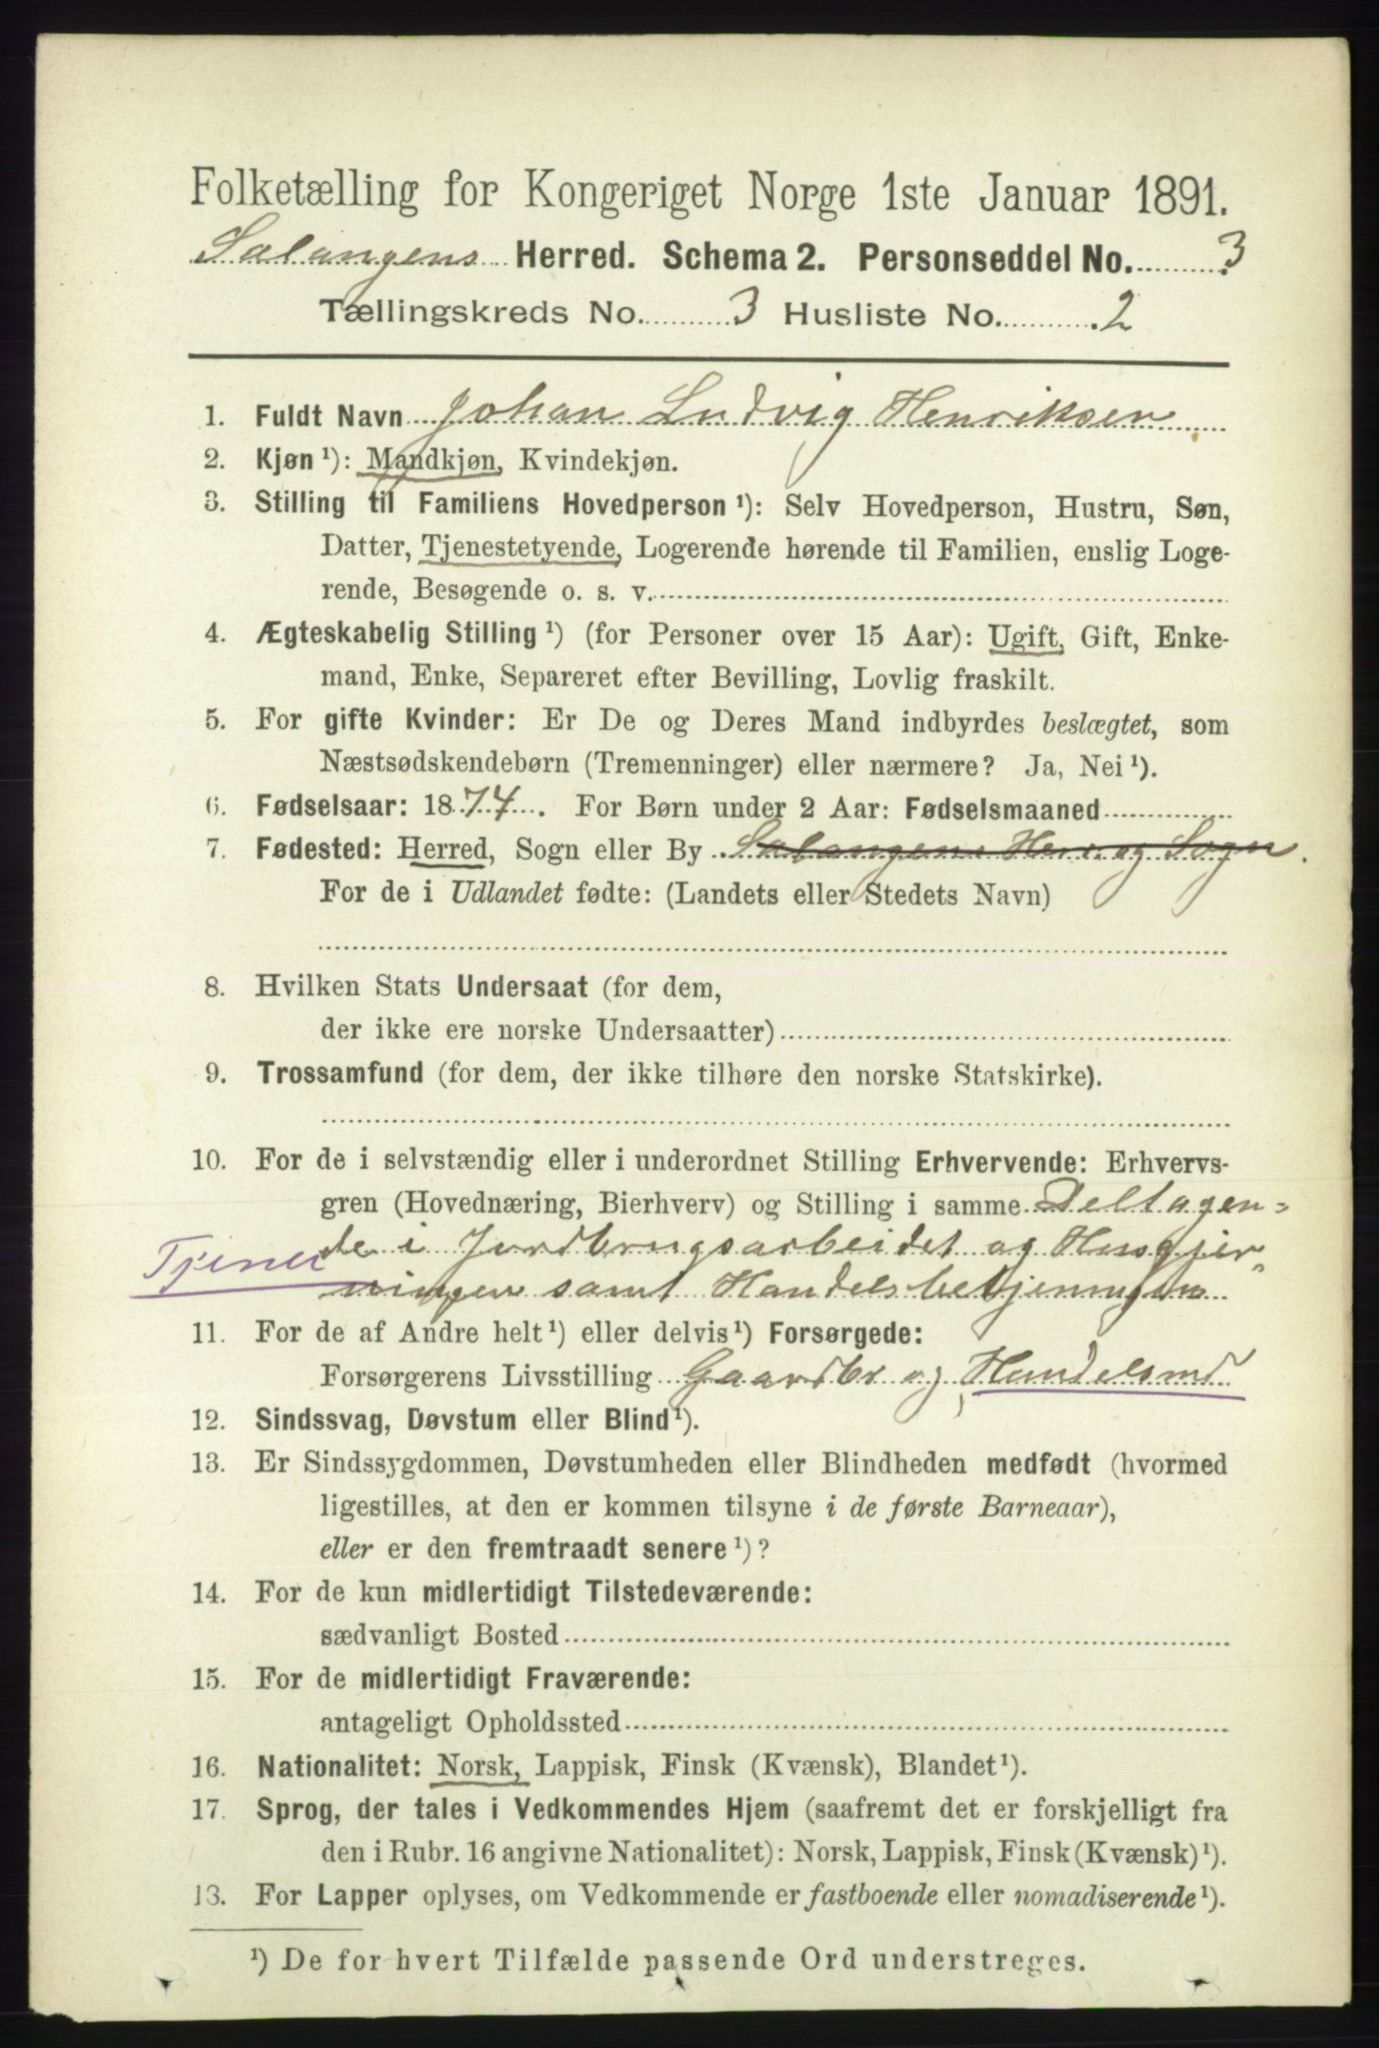 Folketælling for Kongeriget Norge 1ste Januar 1891.
Salangens Herred. Schema 2. Personseddel No. 3
Tællingskreds No. 3 Husliste No. 2
1. Fuldt Navn Johan Ludvig Henriksen
2. Kjøn ¹): Mandkjøn, Kvindekjøn.
3. Stilling til Familiens Hovedperson ¹): Selv Hovedperson, Hustru, Søn,
Datter, Tjenestetyende, Logerende hørende til Familien, enslig Loge-
rende, Besøgende o. s. v.
4. Ægteskabelig Stilling ¹) (for Personer over 15 Aar): Ugift, Gift, Enke-
mand, Enke, Separeret efter Bevilling, Lovlig fraskilt.
5. For gifte Kvinder: Er De og Deres Mand indbyrdes beslægtet, som
Næstsødskendebørn (Tremenninger) eller nærmere? Ja, Nei ¹).
6. Fødselsaar: 1874. For Børn under 2 Aar: Fødselsmaaned
7. Fødested: Herred, Sogn eller By Salangens Herr. og Sogn
For de i Udlandet fødte: (Landets eller Stedets Navn)
8. Hvilken Stats Undersaat (for dem,
der ikke ere norske Undersaatter)
9. Trossamfund (for dem, der ikke tilhøre den norske Statskirke).
10. For de i selvstændig eller i underordnet Stilling Erhvervende: Erhvervs-
gren (Hovednæring, Bierhverv) og Stilling i samme Deltagen=
de i Jordbrugsarbeidet og Husgjer
Tjener
ningen samt Handelsbetjeningen
11. For de af Andre helt ¹) eller delvis ¹) Forsørgede:
Forsørgerens Livsstilling Gaardbr og Handelsmd
12. Sindssvag, Døvstum eller Blind ¹).
13. Er Sindssygdommen, Døvstumheden eller Blindheden medfødt (hvormed
ligestilles, at den er kommen tilsyne i de første Barneaar),
eller er den fremtraadt senere ¹)?
14. For de kun midlertidigt Tilstedeværende:
sædvanligt Bosted
15. For de midlertidigt Fraværende:
antageligt Opholdssted
16. Nationalitet: Norsk, Lappisk, Finsk (Kvænsk), Blandet ¹).
17. Sprog, der tales i Vedkommendes Hjem (saafremt det er forskjelligt fra
den i Rubr. 16 angivne Nationalitet): Norsk, Lappisk, Finsk (Kvænsk) ¹).
13. For Lapper oplyses, om Vedkommende er fastboende eller nomadiserende ¹).
¹) De for hvert Tilfælde passende Ord understreges.